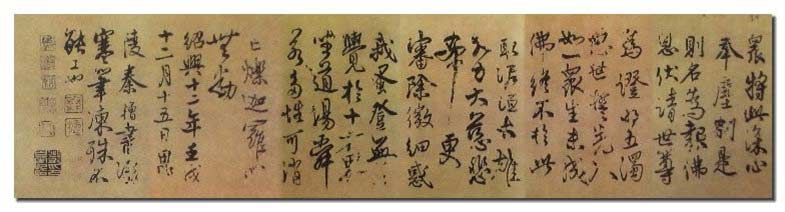 衆將此深心
奉塵剎是
則名為報佛
恩伏請世尊
為證明五濁
惡世誓先入
如一衆生未成
佛終不於此
取泥洹大雄
大力大慈悲
希更
審除微細惑
我蚤登無上
覺於十方界
坐道場舜
若多性可消
亡爍迦羅心
無動
紹興十二年壬戌
十二月十五日毘
陵秦檜書
寒筆凍殊不
能工也